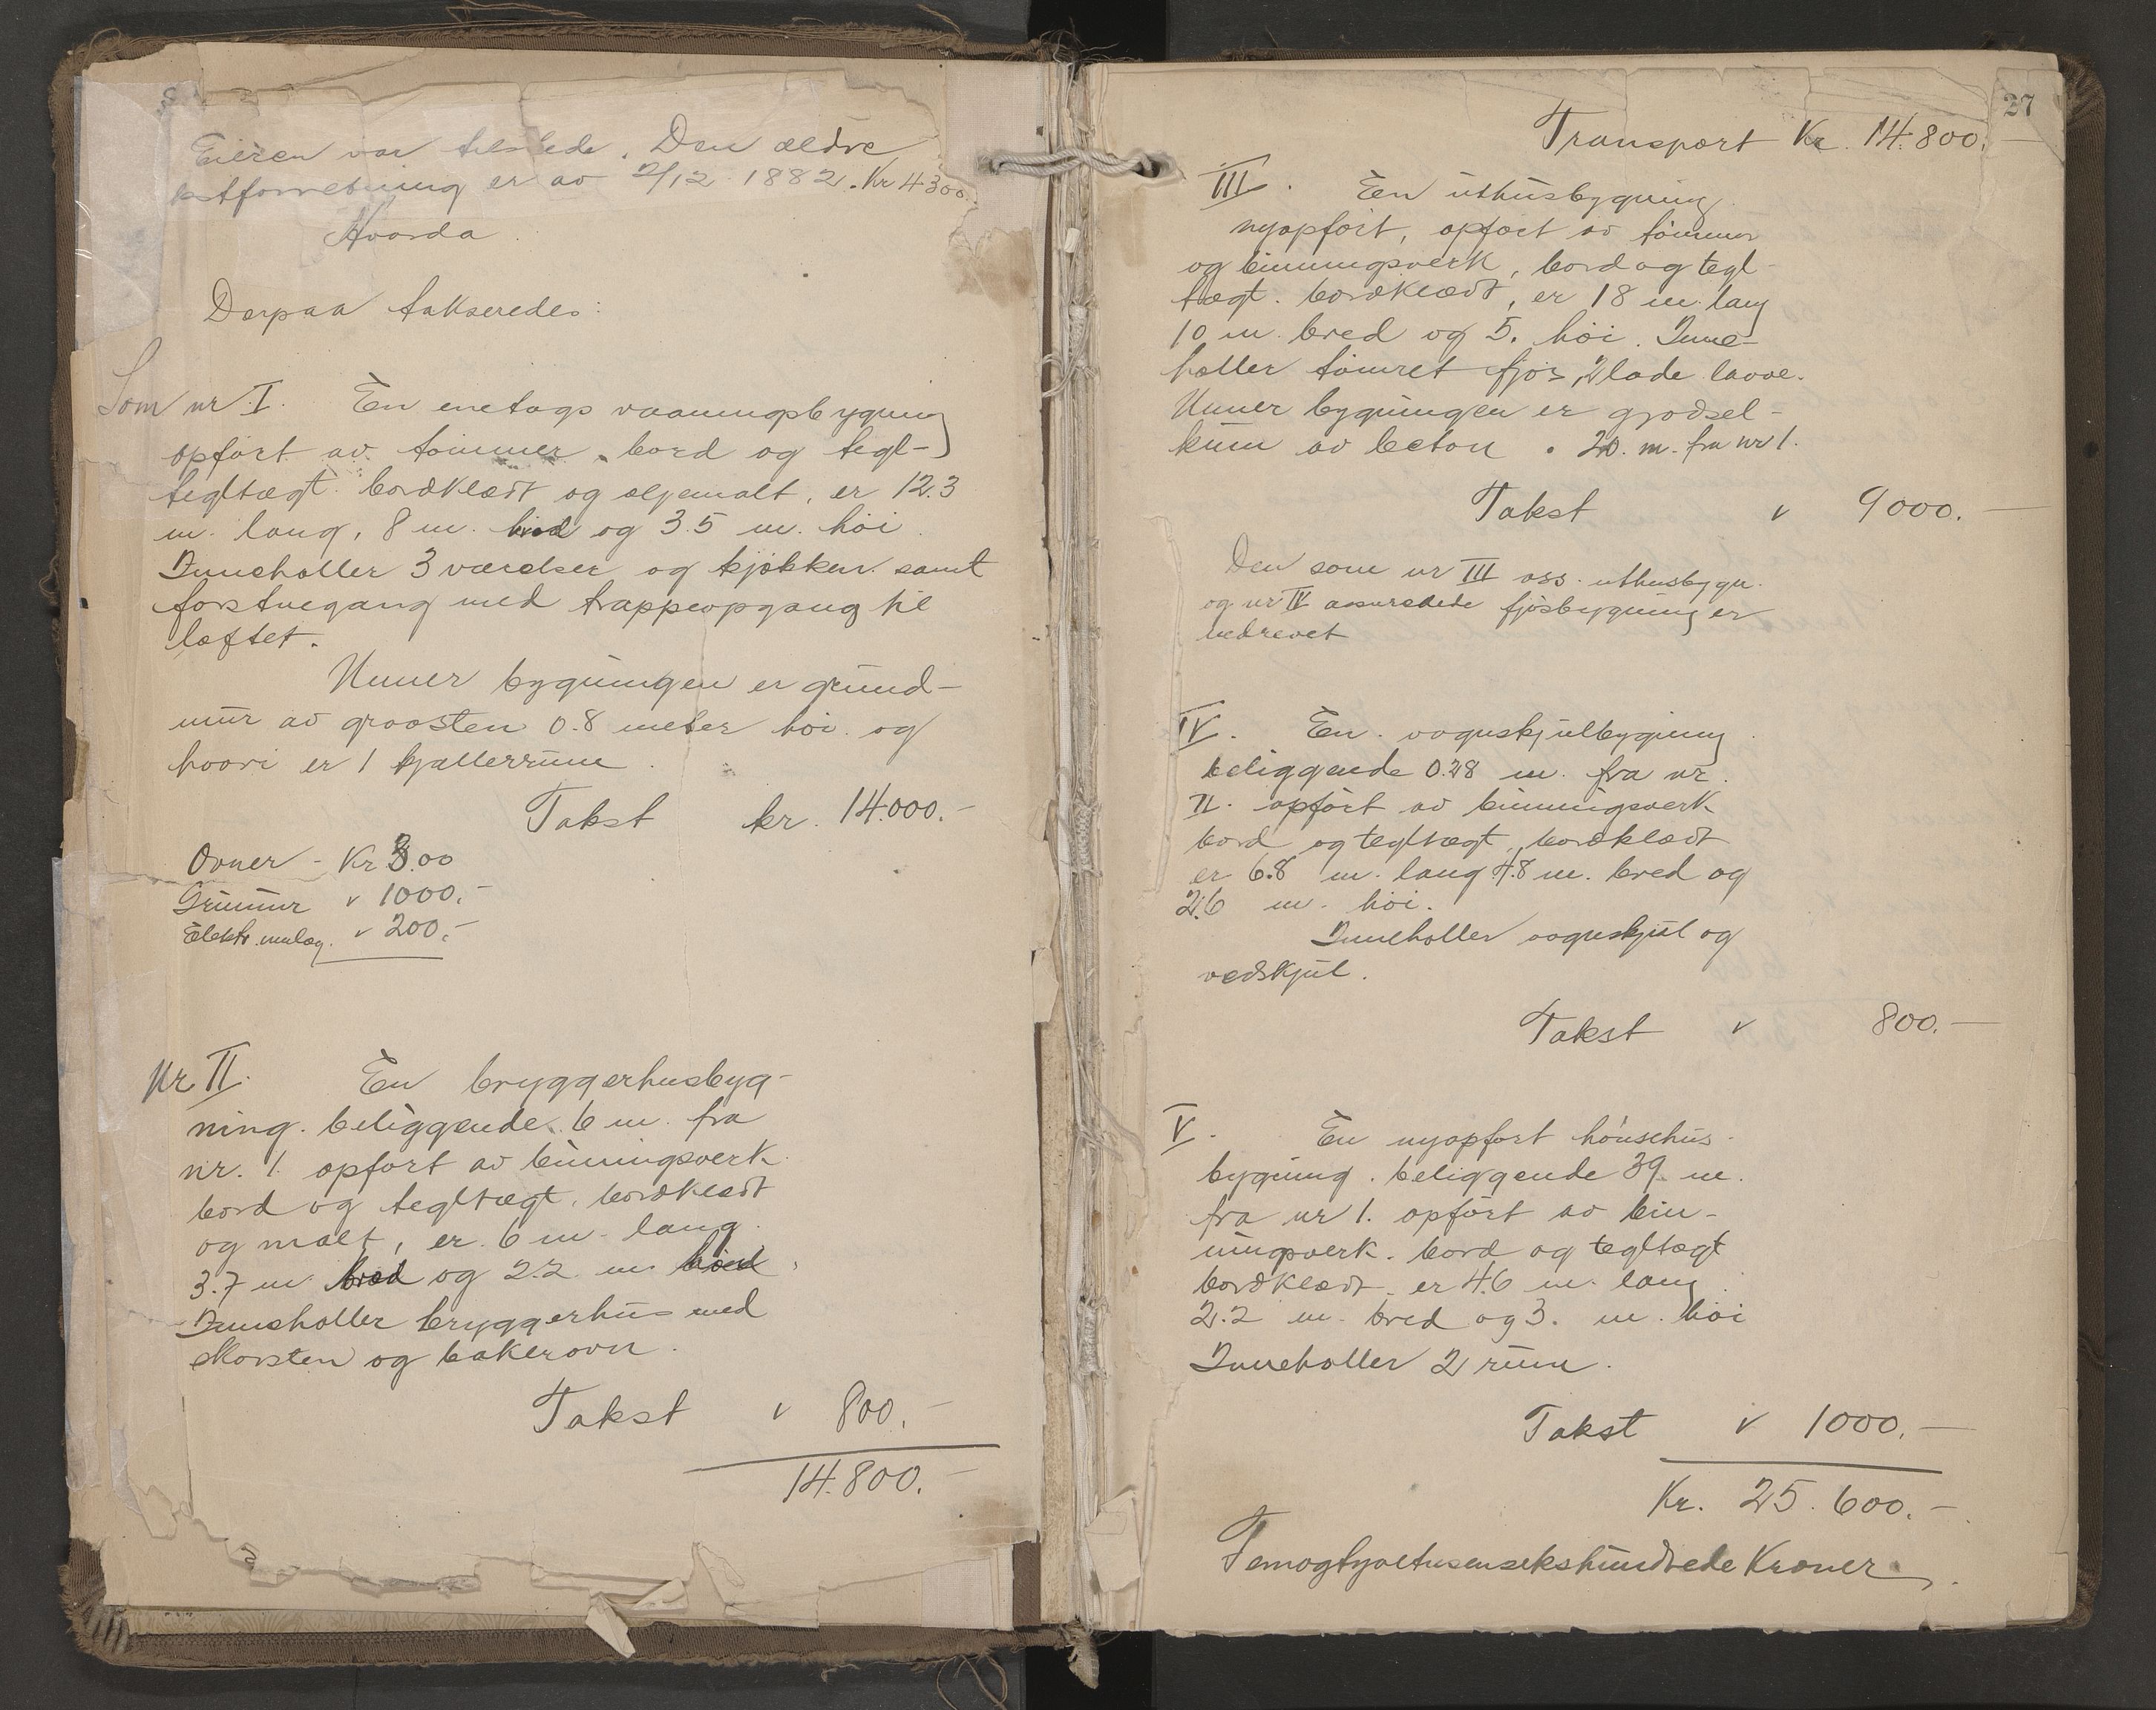 Eieren var tilstede. Den ældre
kstforretning er av 2/12 1882. Kr 4300.
Hvorda
Derpaa takseredes:
Som nr. I. En enetags vaaningsbygning
opført av tømmer bord og tegl-
tegltægt. bordklædt og oljemalt, er 12.3
m. lang, 8 m. bred og 3.5 m. høi.
Inneholler 3 værelser og kjøkken samt
forstuegang med trappeopgang til
loftet.
Unner bygningen er grund-
mur av graasten 0.8 meter høi. og
hvori er 1 kjællerrum.
Takst kr. 14.000.-
Ovner - Kr 300
Grunmur " 1000.-
Elektr. innlæg. " 200.-
Nr II. En bryggerhusbyg-
ning. beliggende 6 m. fra
nr. 1. opført av binningsverk
bord og tegltægt, bordklædt
og malt, er 6 m. lang
3.7 m bred og 2.2 m høi
Inneholler bryggerhus med
skorsten og bakerovn.
Takst " 800.-
14.800.-
27
Transport Kr. 14.800.-
III. En uthusbygning
nyopført, opført av tømmer
og binningsverk, bord og tegl-
tægt. bordklædt, er 18 m. lang
10 m. bred og 5. høi. Inne-
holler tømret fjøs, 2 lade laave.
Unner bygningen er gjødsel-
kum av beton. 20. m. fra nr 1.
Takst " 9000.-
Den som nr III ass. uthusbygn.
og nr IV assurerede fjøsbygning er
nedrevet
IV. En vognskjulbygning
beliggende 0.28 m. fra nr.
II. opført av binningsverk
bord og tegltægt, bordklædt
er 6.8 m. lang 4.8 m. bred og
2.6 m. høi.
Inneholler vognskjul og
vedskjul.
Takst " 800.-
V. En nyopført hønsehus-
bygning. beliggende 39 m.
fra nr 1. opført av bin-
ningverk. bord og tegltægt
bordklædt. er 4.6 m. lang
2.2 m. bred og 3. m. høi
Inneholler 2 rum.
Takst " 1000.-
Kr. 25.600.-
Femogtyvetusensekshundrede Kroner.